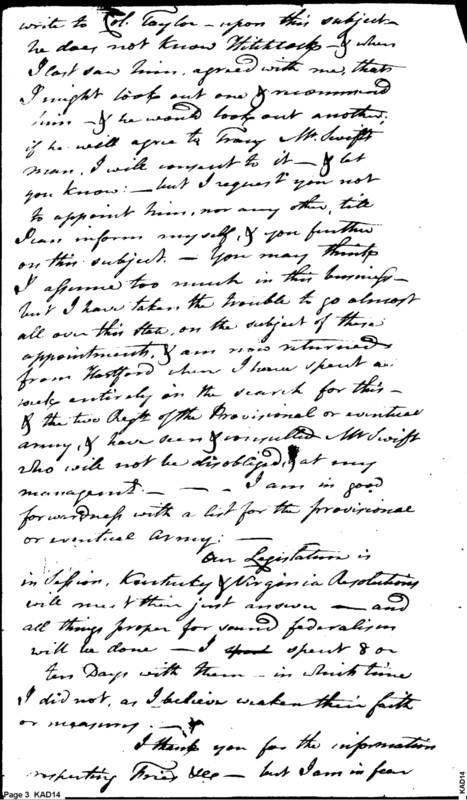 write to Col. Taylor – upon this subject
he does not know Hitchcock – & when
I last saw him, agreed with me, that
I might look out one & recommend
him – & he would look out another;
if he will agree to Tracy Mr. Swift
man, I will consent to it – & let
you know: – but I request you not
to appoint him, nor any other, till
I can inform myself, & you further
on this subject. – You may think
I assume too much in this business –
but I have taken the trouble to go almost
all over this State, on the subject of these
appointments, & am now returned
from Hartford where I have spent a
week entirely in the search for this –
& the two Regts of the Provisional or eventual
army, & have seen & consulted Mr Swift
who will not be disobliged, at my
management. – – – I am in good
forwardness with a list for the provisional
or eventual Army: –
Our Legislature is
in Session, Kentucky & Virginia Resolutions
will meet their just answer – and
all things proper for sound federalism
will be done – I spent 8 or
ten Days with them – in which time
I did not, as I believe weaken their faith
or measures. –
I thank you for the information
respecting Fries &c – but I am in fear
Page 3 KAD14
KAD14